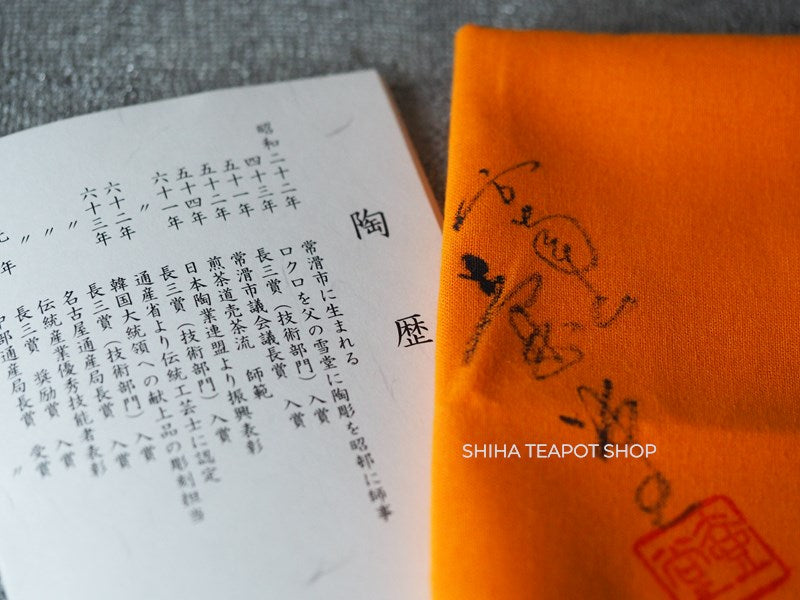 陶歴
昭和二十二年 常滑市に生まれる
四十三年 ロクロを父の雪堂に陶彫を昭邨に師事
五十一年 長三賞(技術部門)入賞
五十二年 常滑市議会議長賞 入賞
五十四年 煎茶道売茶流 師範
六十一年 日本陶業連盟より振興表彰
〃 長三賞(技術部門)入賞
六十二年 通産省より伝統工芸士に認定
六十三年 韓国大統領への献上品の彫刻担当
〃 長三賞(技術部門)入賞
〃 名古屋通産局長賞 入賞
〃 伝統産業優秀技能者表彰
元年 長三賞 奨励賞 受賞
中部通産局長賞 〃
SHIHA TEAPOT SHOP